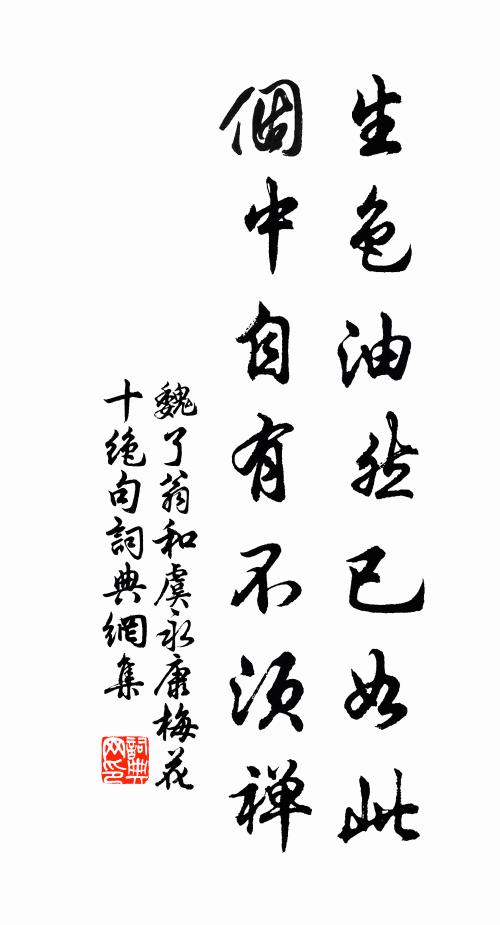 生色油然已如此
個中自有不須禪
魏了翁和虞永康梅花
十絕句詞典網集
詞典
網印